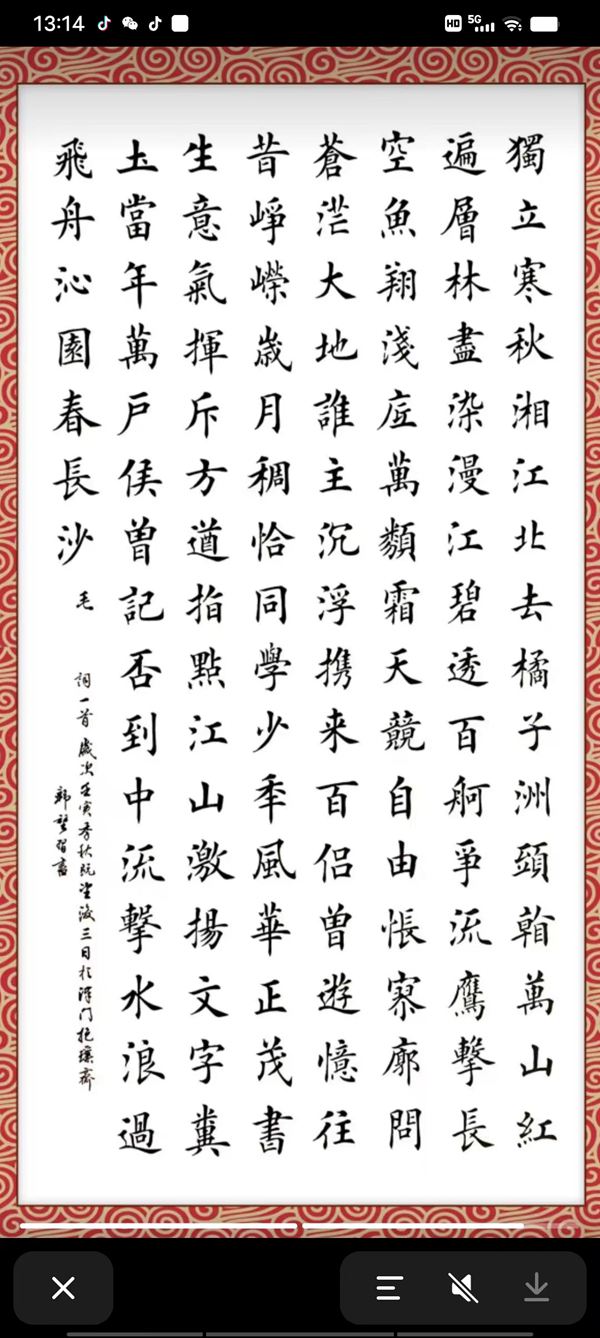 獨立寒秋湘江北去橘子洲頭翰萬山紅
遍層林盡染漫江碧透百舸爭流鷹擊長
空魚翔淺底萬類霜天競自由悵寥廓問
蒼茫大地誰主沉浮携来百侶曾遊憶往
昔崢嶸歲月稠恰同學少年風華正茂書
生意氣揮斥方遒指點江山激揚文字糞
土當年萬戶侯曾記否到中流擊水浪過
飛舟沁園春長沙 毛
詞一首 歲次壬寅季秋既望後三日於門抱璞齋
習書
13:14
HD 5G